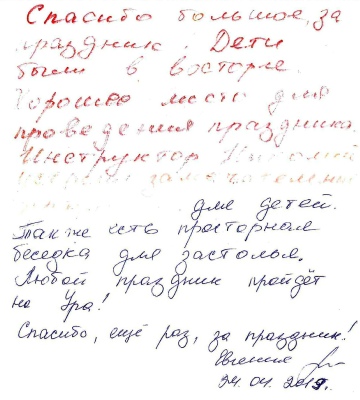 Спасибо большое, за
праздник. Дети
были в восторге.
Хорошее место для
проведения праздника.
Инструктор
для детей.
Так же есть просторная
беседка для застолья.
Любой праздник пройдёт
на Ура!
Спасибо, ещё раз, за праздник!
Евгения
24.04.2019.